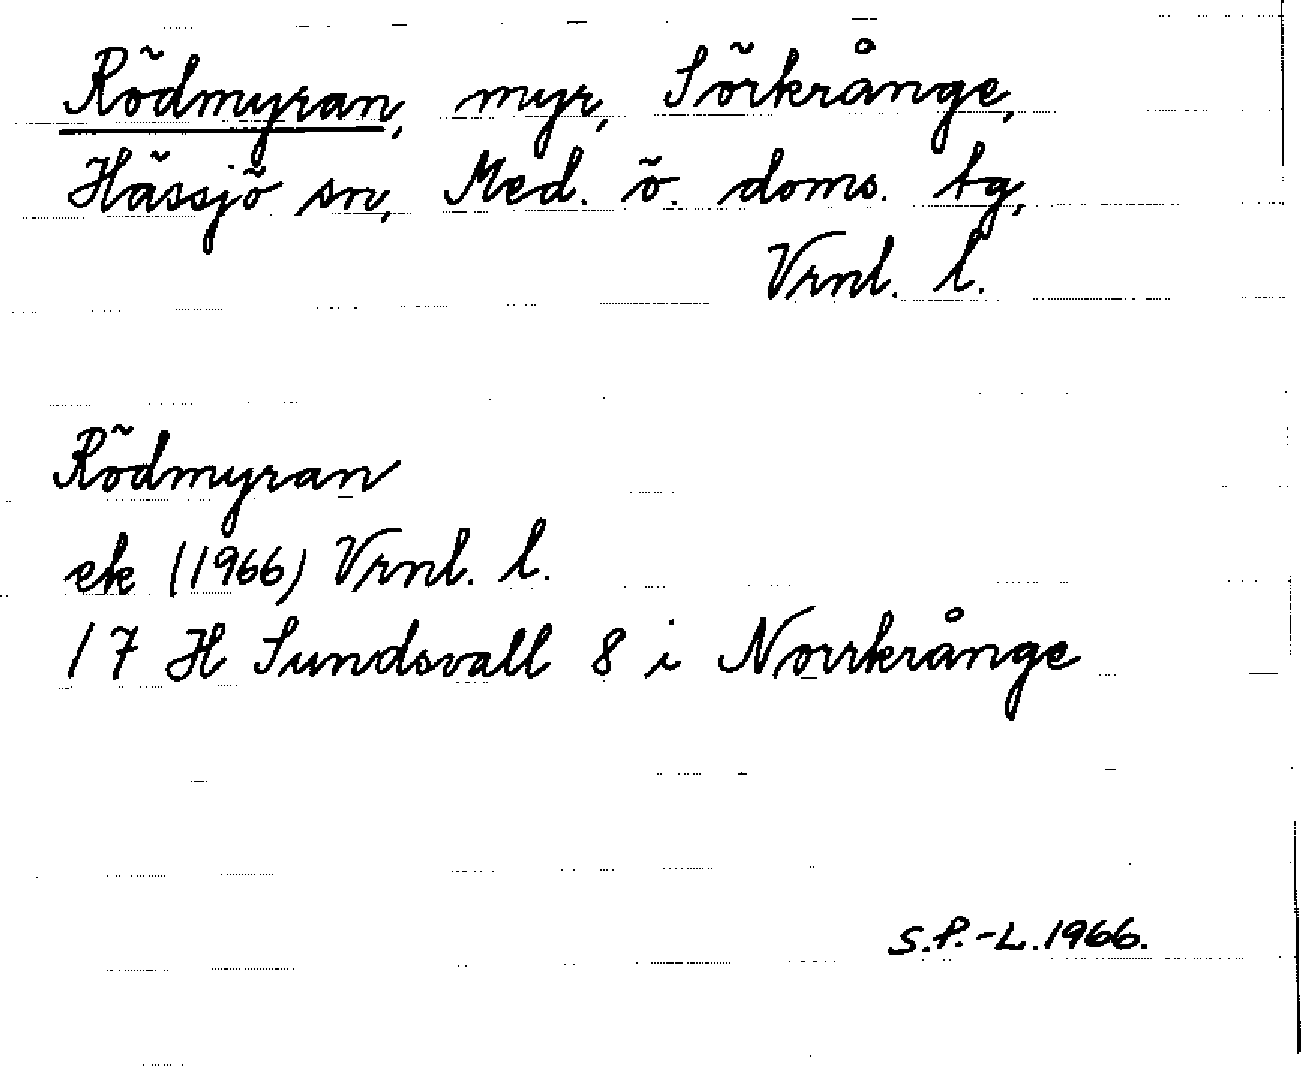 Rödmyran, myr, Sörkrånge,
Hässjö sn, Med. ö. doms. tg,
Vrnl. l.
Rödmyran
ek (1966) Vrnl. l.
17 H Sundsvall 8 i Norrkrånge
S.P.-L. 1966.